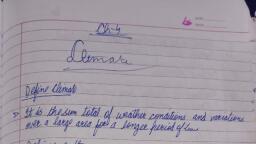 Ch-4
Climate
Define Climate
⇒ It is the sum total of weather conditions and variations
over a large area for a longer period of time